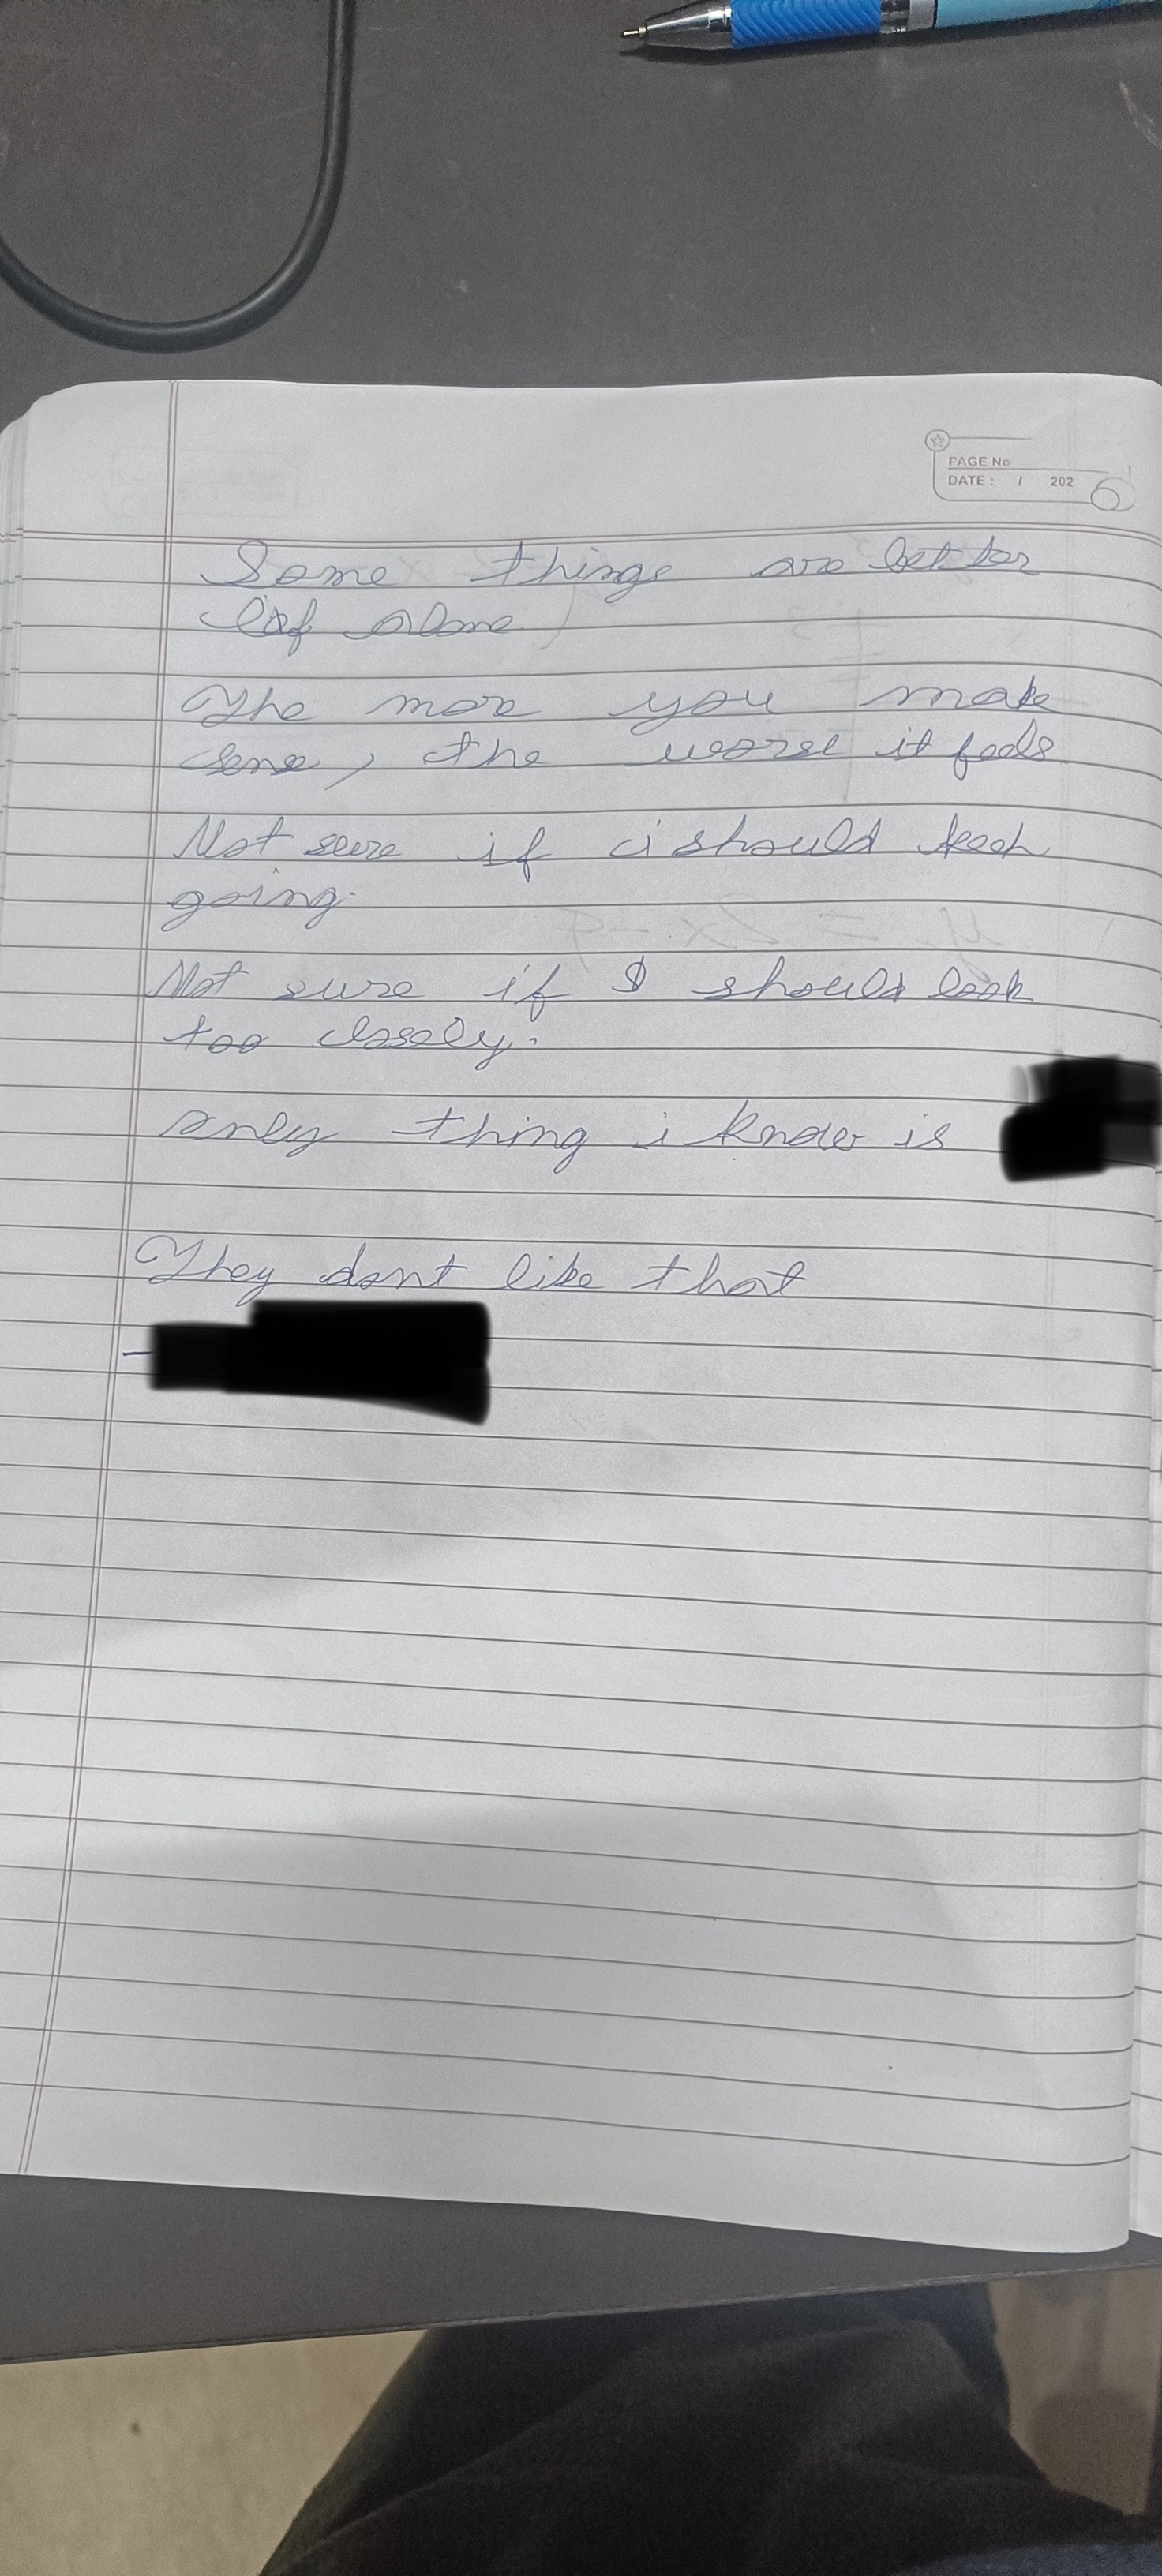 PAGE No
DATE : / 202 6
Some things are better
lef alone
The more you make
sense, the worse it feels
Not sure if i should keep
going.
Not sure if I should look
too closely.
only thing i know is
They dont like that
-